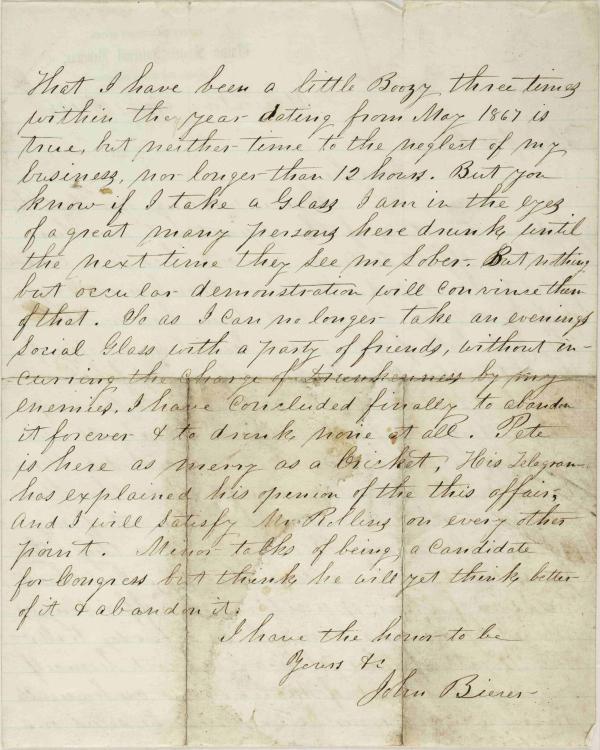 That I have been a little Boozy three times
within the year dating from May 1867 is
true, but neither time to the neglect of my
business, nor longer than 12 hours. But you
know if I take a Glass I am in the eyes
of a great many persons here drunk until
the next time they see me Sober. But nothing
but occular demonstration will convince them
of that. So as I can no longer take an evenings
Social Glass with a party of friends, without in-
curring the charge of Drunkenness by my
enemies. I have concluded finally to abandon
it forever & to drink none at all. Pete
is here as merry as a Cricket, His Telegram
has explained his openion of the this affair,
and I will satisfy Mr Rollins on every other
point. Minor talks of being a candidate
for Congress but think he will yet think better
of it & abandon it.
I have the honor to be
Yours &c
John Bierer